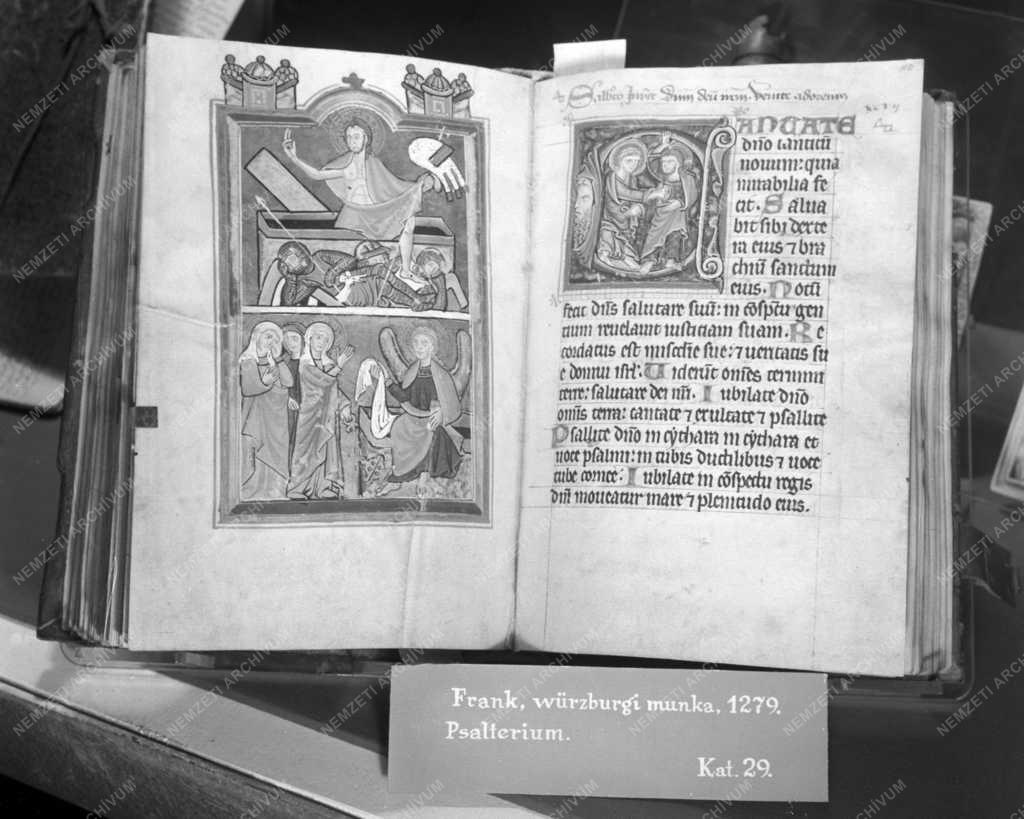 ANTATE
dno canticu
nouum: quia
mirabilia fe
cit. Salua
bit sibi dexte
ra eius ⁊ bra
chiu sanctum
eius. Notu
fecit dns salutare suu: in cospectu gen
tium reuelauit iusticiam suam. Re
cordatus est miscdie sue: ⁊ ueritatis su
e domui isrl. Uiderut omes termini
terre: salutare dei nri. Iubilate dno
omis terra: cantate ⁊ exultate ⁊ psallite
Psallite dno in cythara in cythara et
uoce psalmi: in tubis ductilibus ⁊ uoce
tube cornee. Iubilate in cospectu regis
dni moueatur mare ⁊ plenitudo eius.
Frank, würzburgi munka, 1279.
Psalterium.
Kat. 29.
NEMZETI ARCHÍVUM